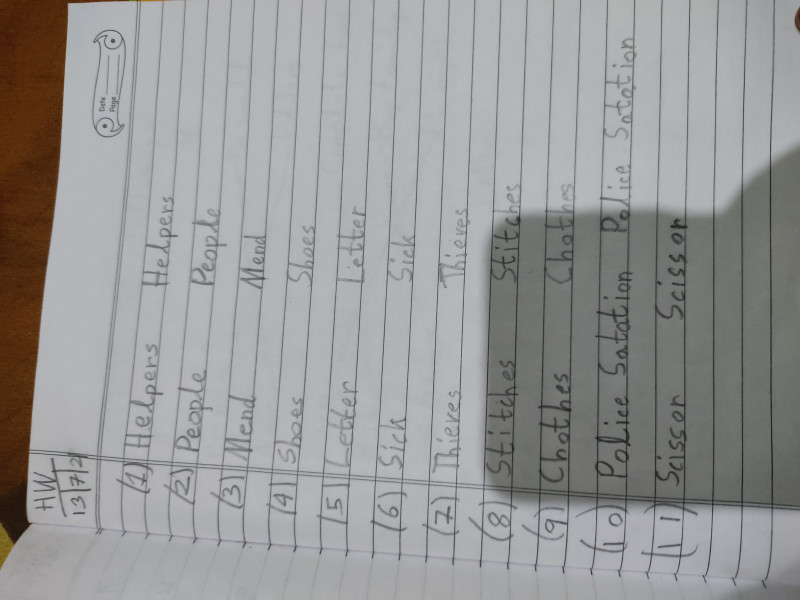 Date
Page
HW
13/7/2
(1) Helpers Helpers
(2) People People
(3) Mend Mend
(4) Shoes Shoes
(5) Letter Letter
(6) Sick Sick
(7) Thieves Thieves
(8) Stitches Stitches
(9) Chothes Chothes
(10) Police Satation Police Satation
(11) Scissor Scissor